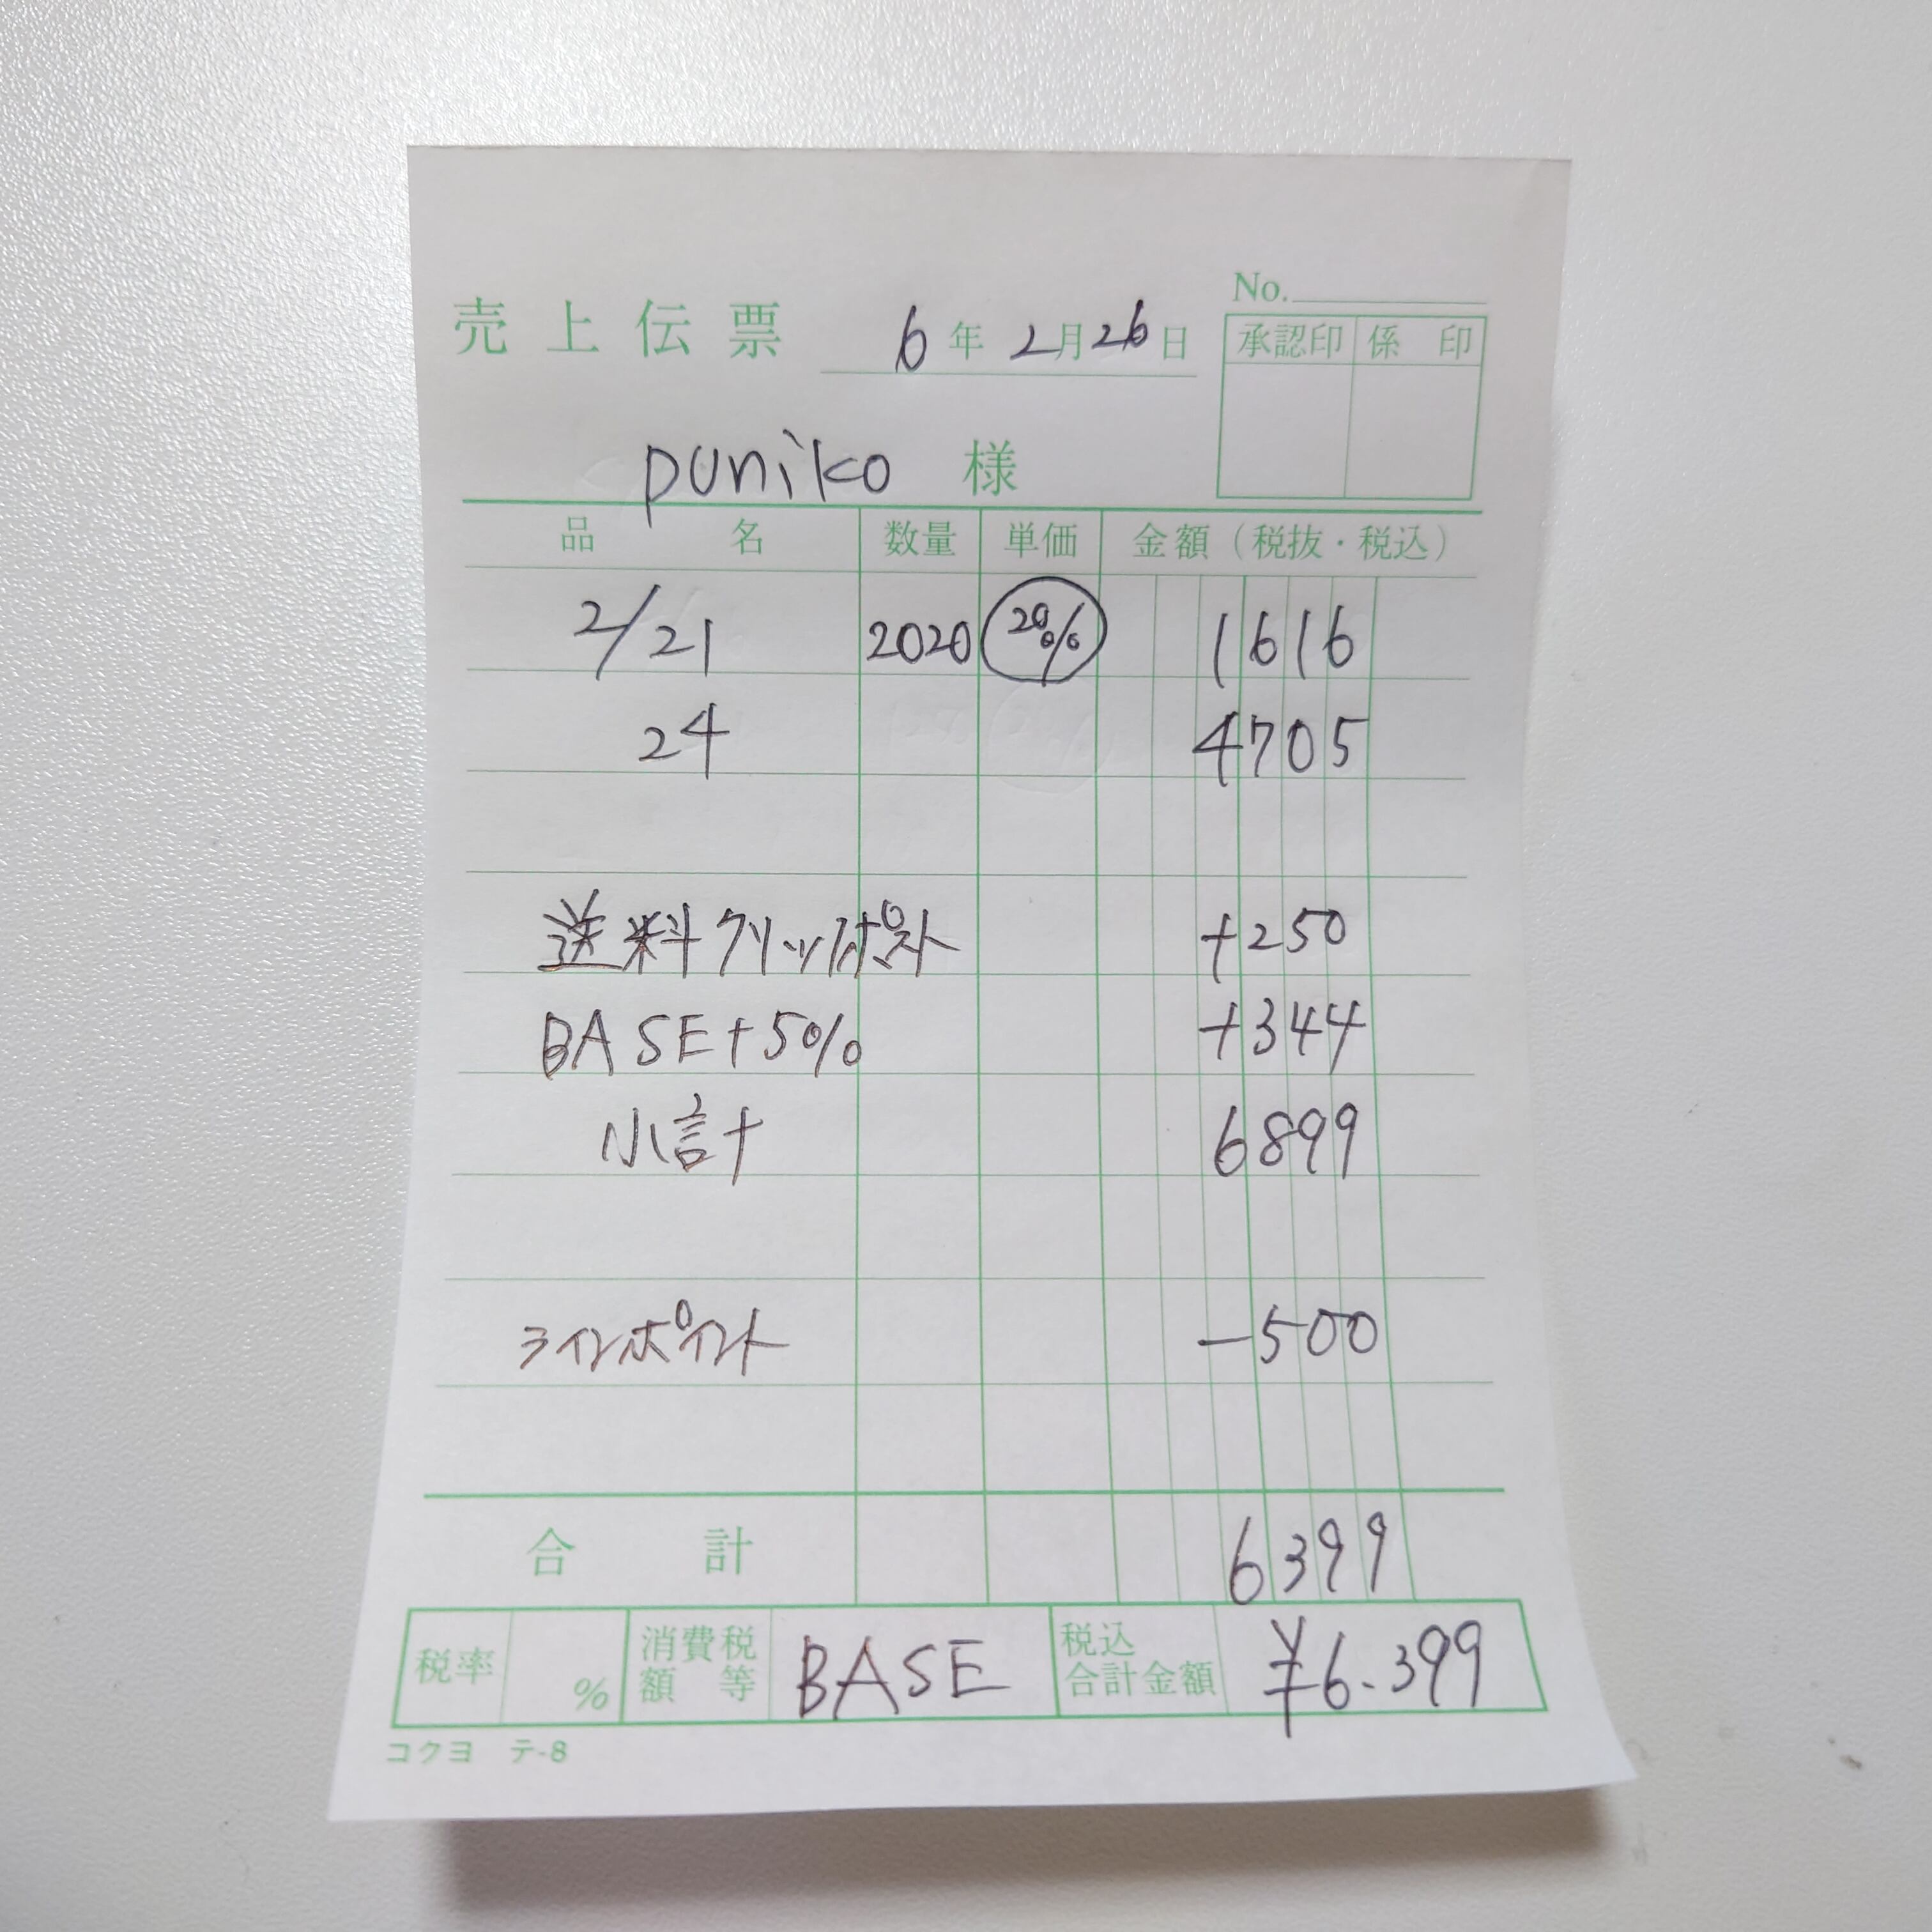 No.
売上伝票 6年2月26日
承認印 係印
puniko 様
品名 数量 単価 金額(税抜・税込)
2/21 2020 20% 1616
24 4705
送料クリップポスト +250
BASE+5% +344
小計 6899
ラインポイント -500
合計 6399
税率 % 消費税額等 BASE 税込合計金額 ¥6.399
コクヨ テ-8